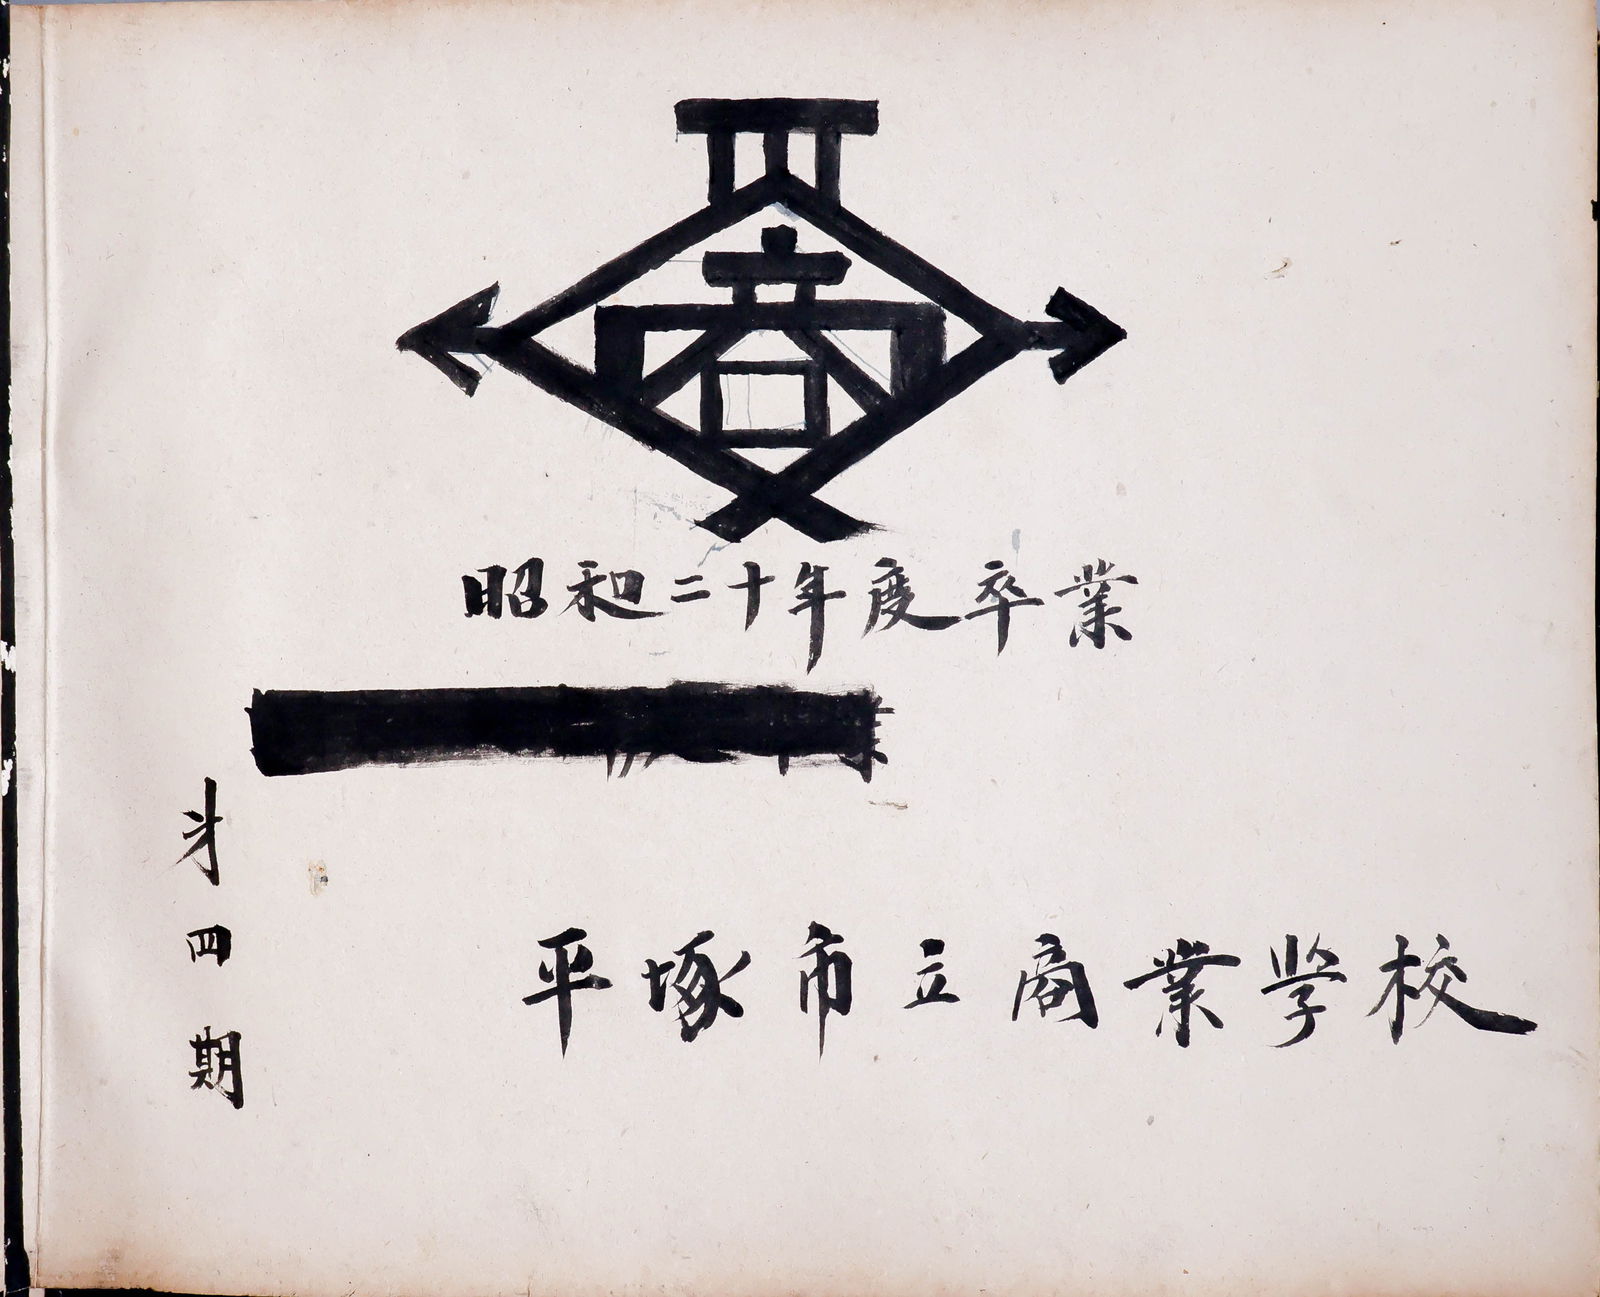 商
昭和二十年度卒業
業
才四期
平塚市立商業学校